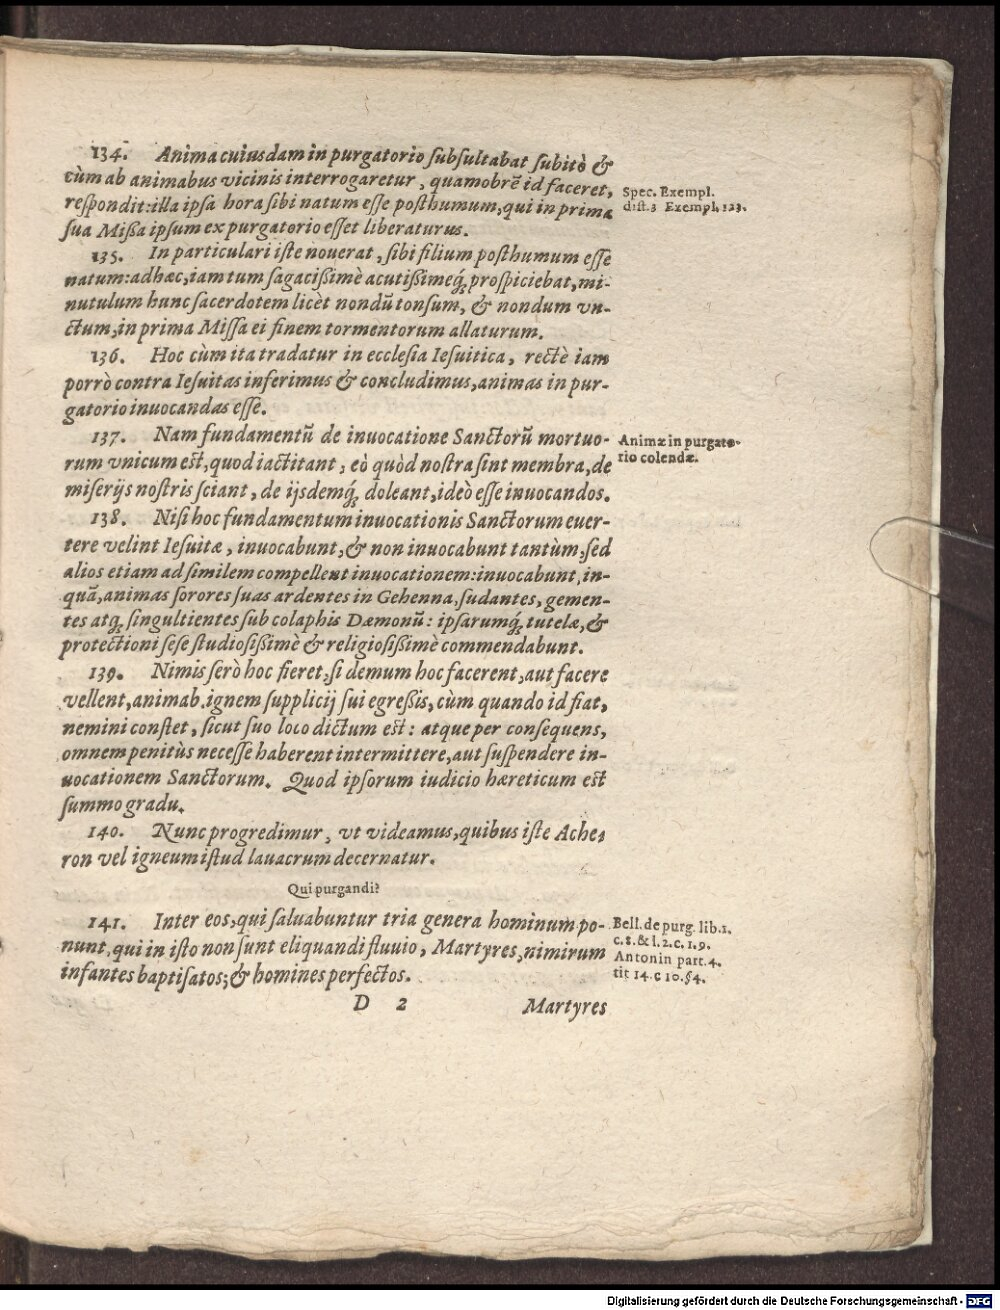 134. Anima cuiusdam in purgatorio subsultabat subitò &
cùm ab animabus vicinis interrogaretur, quamobrẽ id faceret,
respondit: illa ipsa hora sibi natum esse posthumum, qui in prima
sua Mißa ipsum ex purgatorio esset liberaturus.
Spec. Exempl.
dist. 3 Exempl. 123.
135. In particulari iste nouerat, sibi filium posthumum esse
natum: adhæc, iam tum sagacißimè acutißimeq́; prospiciebat, mi-
nutulum hunc sacerdotem licèt nondũ tonsum, & nondum vn-
ctum, in prima Missa ei finem tormentorum allaturum.
136. Hoc cùm ita tradatur in ecclesia Iesuitica, rectè iam
porrò contra Iesuitas inferimus & concludimus, animas in pur-
gatorio inuocandas esse.
137. Nam fundamentũ de inuocatione Sanctorũ mortuo-
rum vnicum est, quod iactitant, eò quòd nostra sint membra, de
miserijs nostris sciant, de ijsdemq́; doleant, ideò esse inuocandos.
Animæ in purgato-
rio colendæ.
138. Nisi hoc fundamentum inuocationis Sanctorum euer-
tere velint Iesuitæ, inuocabunt, & non inuocabunt tantùm, sed
alios etiam ad similem compellent inuocationem: inuocabunt, in-
quã, animas sorores suas ardentes in Gehenna, sudantes, gemen-
tes atq́; singultientes sub colaphis Dæmonũ: ipsarumq́; tutelæ, &
protectioni sese studiosißimè & religiosißimè commendabunt.
139. Nimis serò hoc fieret, si demum hoc facerent, aut facere
vellent, animab. ignem supplicij sui egreßis, cùm quando id fiat,
nemini constet, sicut suo loco dictum est: atque per consequens,
omnem penitùs necesse haberent intermittere, aut suspendere in-
uocationem Sanctorum. Quod ipsorum iudicio hæreticum est
summo gradu.
140. Nunc progredimur, vt videamus, quibus iste Ache-
ron vel igneum istud lauacrum decernatur.
Qui purgandi?
141. Inter eos, qui saluabuntur tria genera hominum po-
nunt, qui in isto non sunt eliquandi fluuio, Martyres, nimirum
infantes baptisatos; & homines perfectos.
Bell. de purg. lib. 1.
c. 8. & l. 2. c. 1. 9.
Antonin part. 4.
tit 14. c 10. §4.
D 2 Martyres
Digitalisierung gefördert durch die Deutsche Forschungsgemeinschaft - DFG